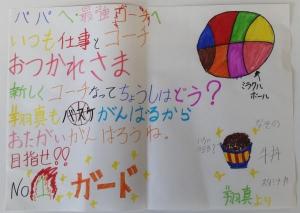 パパへ最強コーチへ
いつも仕事とコーチ
おつかれさま
新しくコーチなってちょうしはどう?
翔真もバスケがんばるから
おたがいがんばろうね。
目指せ!!
No1ガード
ミラクル
ボール
なぞの
牛丼
スタミナ
翔真より